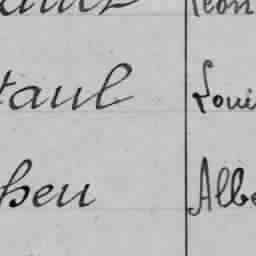 Léon
taul Loui
heu Albe